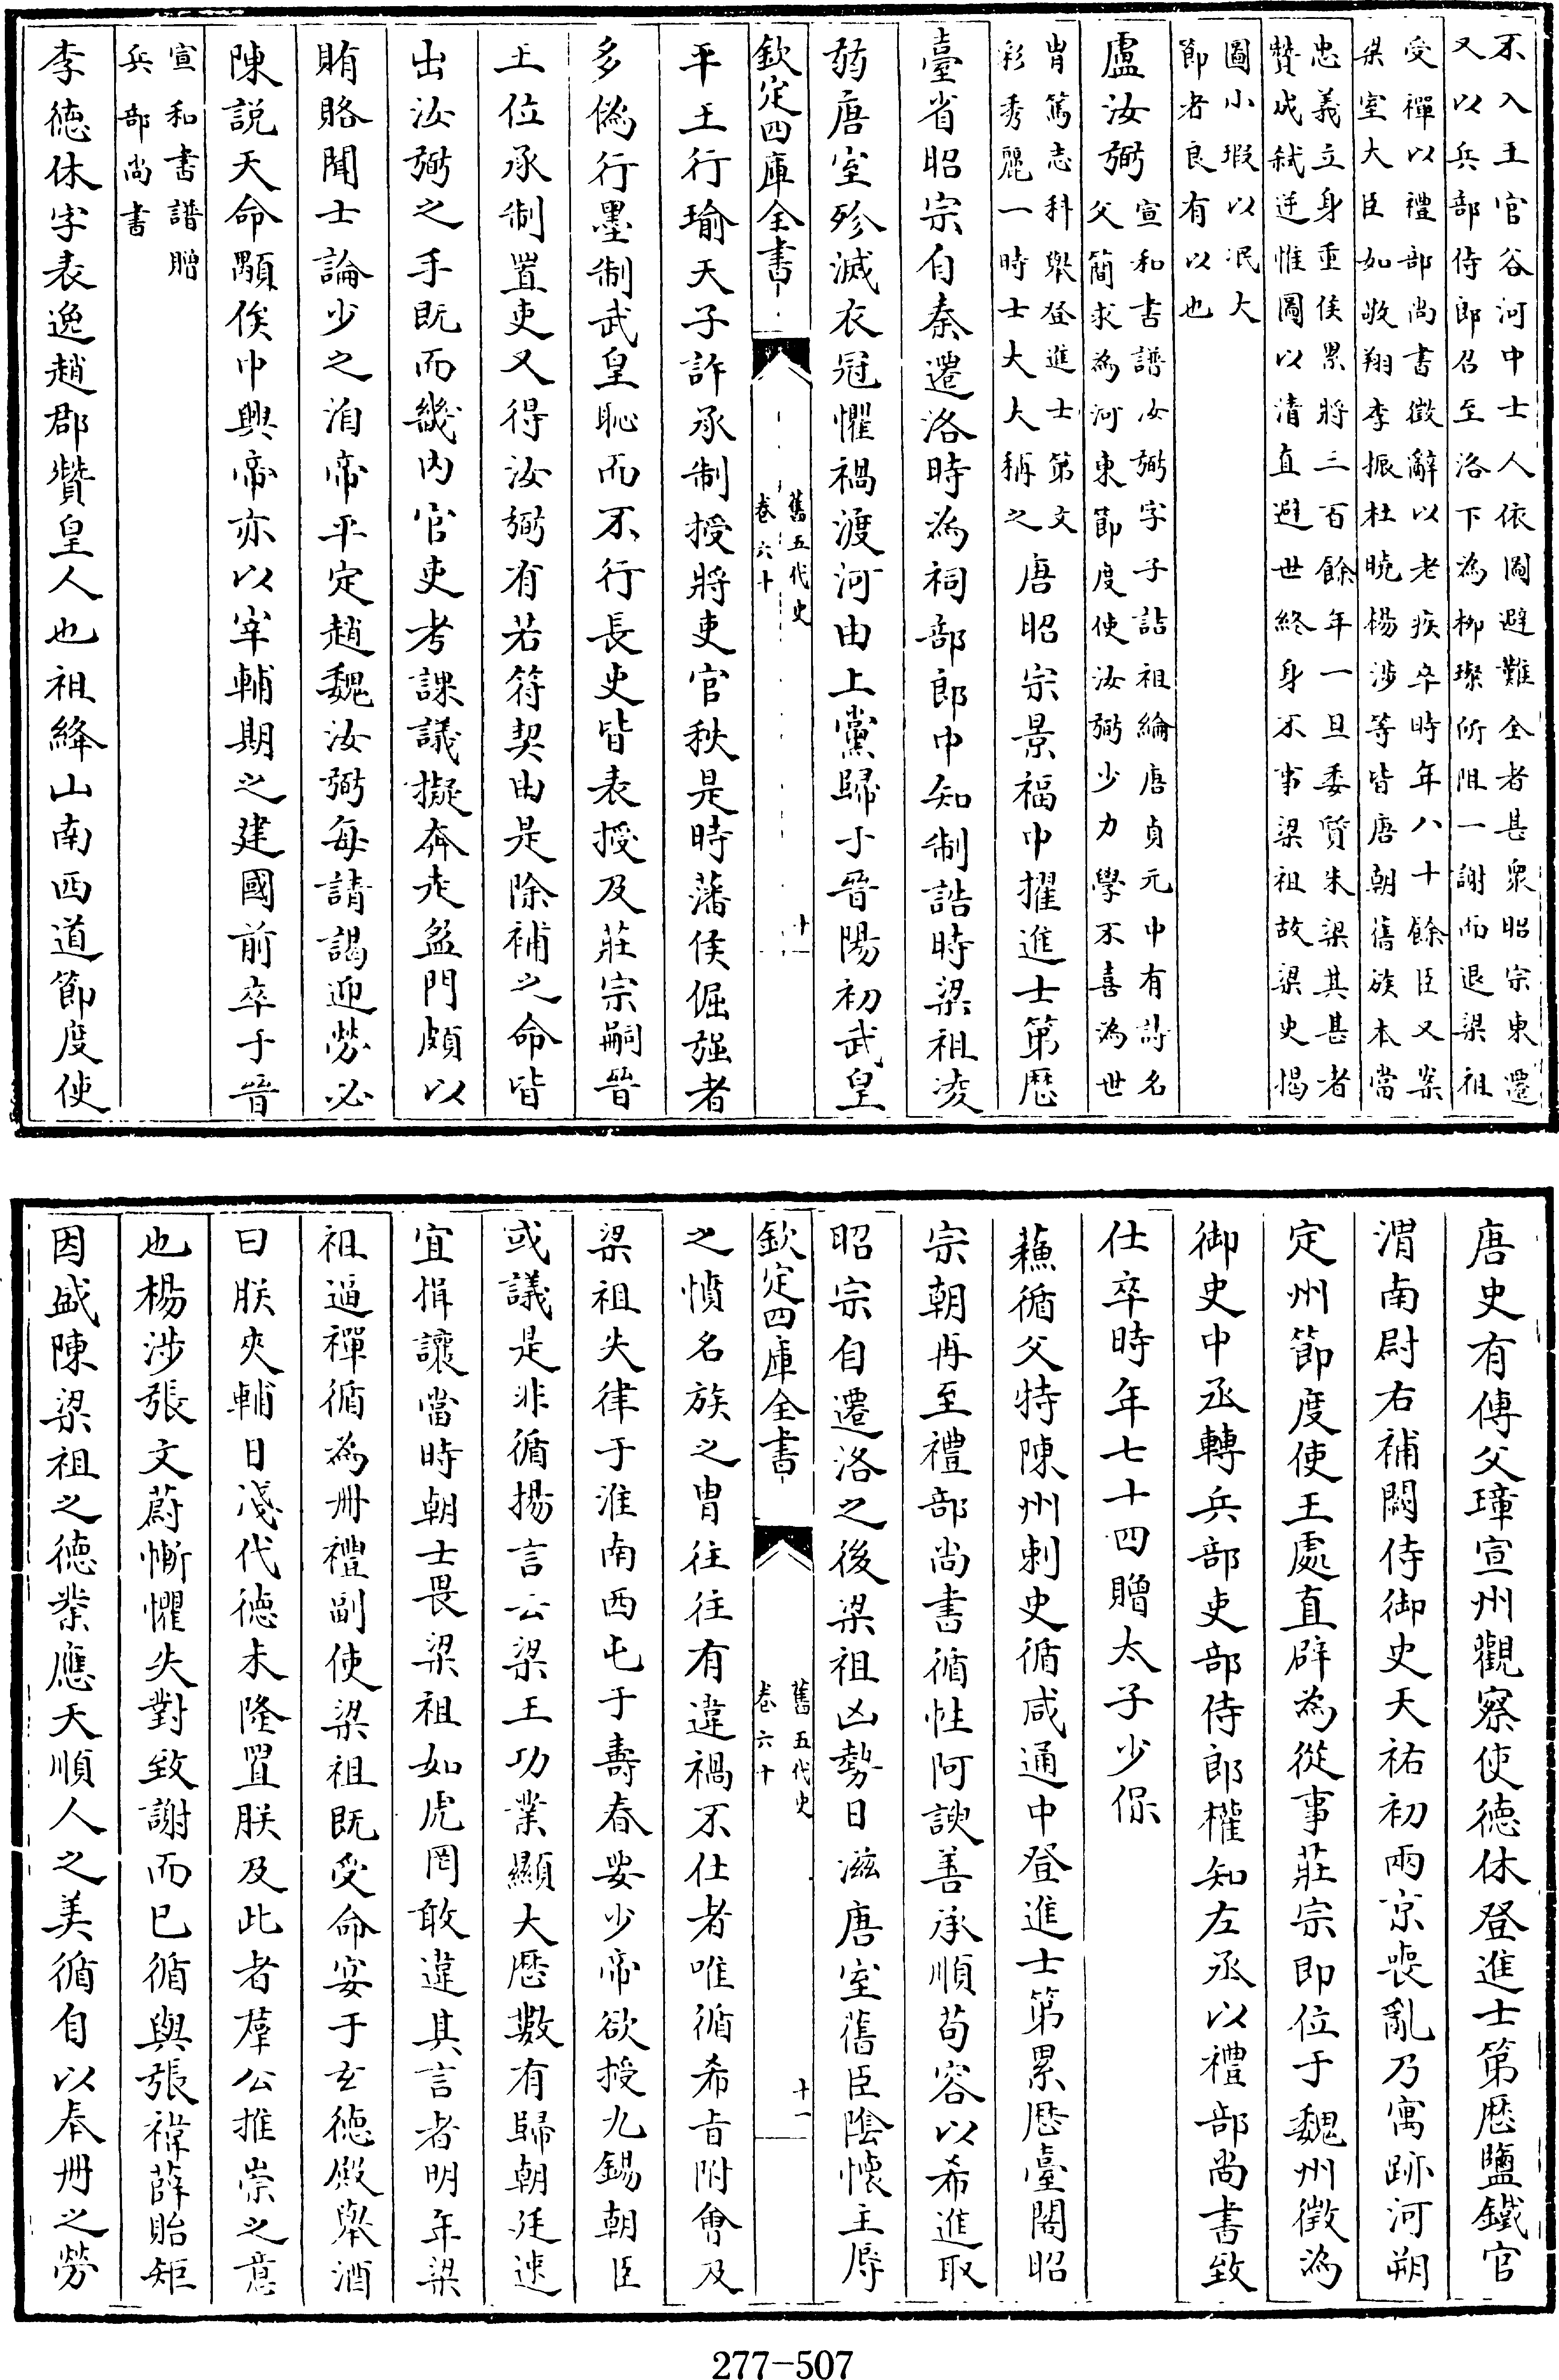 不入王官谷河中士人依圖避難全者甚衆昭宗東遷
又以兵部侍郎召至洛下為柳璨所阻一謝而退梁祖
受禪以禮部尚書徵辭以老疾卒時年八十餘臣又案
梁室大臣如敬翔李振杜曉楊涉等皆唐朝舊族本當
忠義立身重侯累將三百餘年一旦委質朱梁其甚者
贊成弑逆惟圖以清直避世終身不事梁祖故梁史揭
圖小瑕以泯大
節者良有以也
盧汝弼
宣和書譜汝弼字子詣祖綸唐貞元中有詩名
父簡求為河東節度使汝弼少力學不喜為世
胄篤志科舉登進士第文
彩秀麗一時士大大稱之
唐昭宗景福中擢進士第歷
臺省昭宗自秦遷洛時為祠部郎中知制誥時梁祖凌
弱唐室殄滅衣冠懼禍渡河由上黨歸于晉陽初武皇
欽定四庫全書
舊五代史
卷六十
十
平王行瑜天子許承制授將吏官秩是時藩侯倔強者
多偽行墨制武皇恥而不行長吏皆表授及莊宗嗣晉
王位承制置吏又得汝弼有若符契由是除補之命皆
出汝弼之手既而畿內官吏考課議擬奔走盈門頗以
賄賂聞士論少之洎帝平定趙魏汝弼每請謁迎勞必
陳說天命顒俟中興帝亦以宰輔期之建國前卒于晉
宣和書譜贈
兵部尚書
李德休字表逸趙郡贊皇人也祖絳山南西道節度使
唐史有傳父璋宣州觀察使德休登進士第歷鹽鐵官
渭南尉右補闕侍御史天祐初兩京喪亂乃寓跡河朔
定州節度使王處直辟為從事莊宗即位于魏州徵為
御史中丞轉兵部吏部侍郎權知左丞以禮部尚書致
仕卒時年七十四贈太子少保
蘇循父特陳州刺史循咸通中登進士第累歷臺閣昭
宗朝再至禮部尚書循性阿諛善承順苟容以希進取
昭宗自遷洛之後梁祖凶勢日滋唐室舊臣陰懷主辱
欽定四庫全書
舊五代史
卷六十
十一
之憤名族之胄往往有違禍不仕者唯循希旨附會及
梁祖失律于淮南西屯于壽春要少帝欲授九錫朝臣
或議是非循揚言云梁王功業顯大歷數有歸朝廷速
宜揖讓當時朝士畏梁祖如虎罔敢違其言者明年梁
祖逼禪循為冊禮副使梁祖既受命宴于玄德殿舉酒
曰朕夾輔日淺代德未隆置朕及此者羣公推崇之意
也楊涉張文蔚慚懼失對致謝而已循與張禕薛貽矩
因盛陳梁祖之德業應天順人之美循自以奉冊之勞
277-507